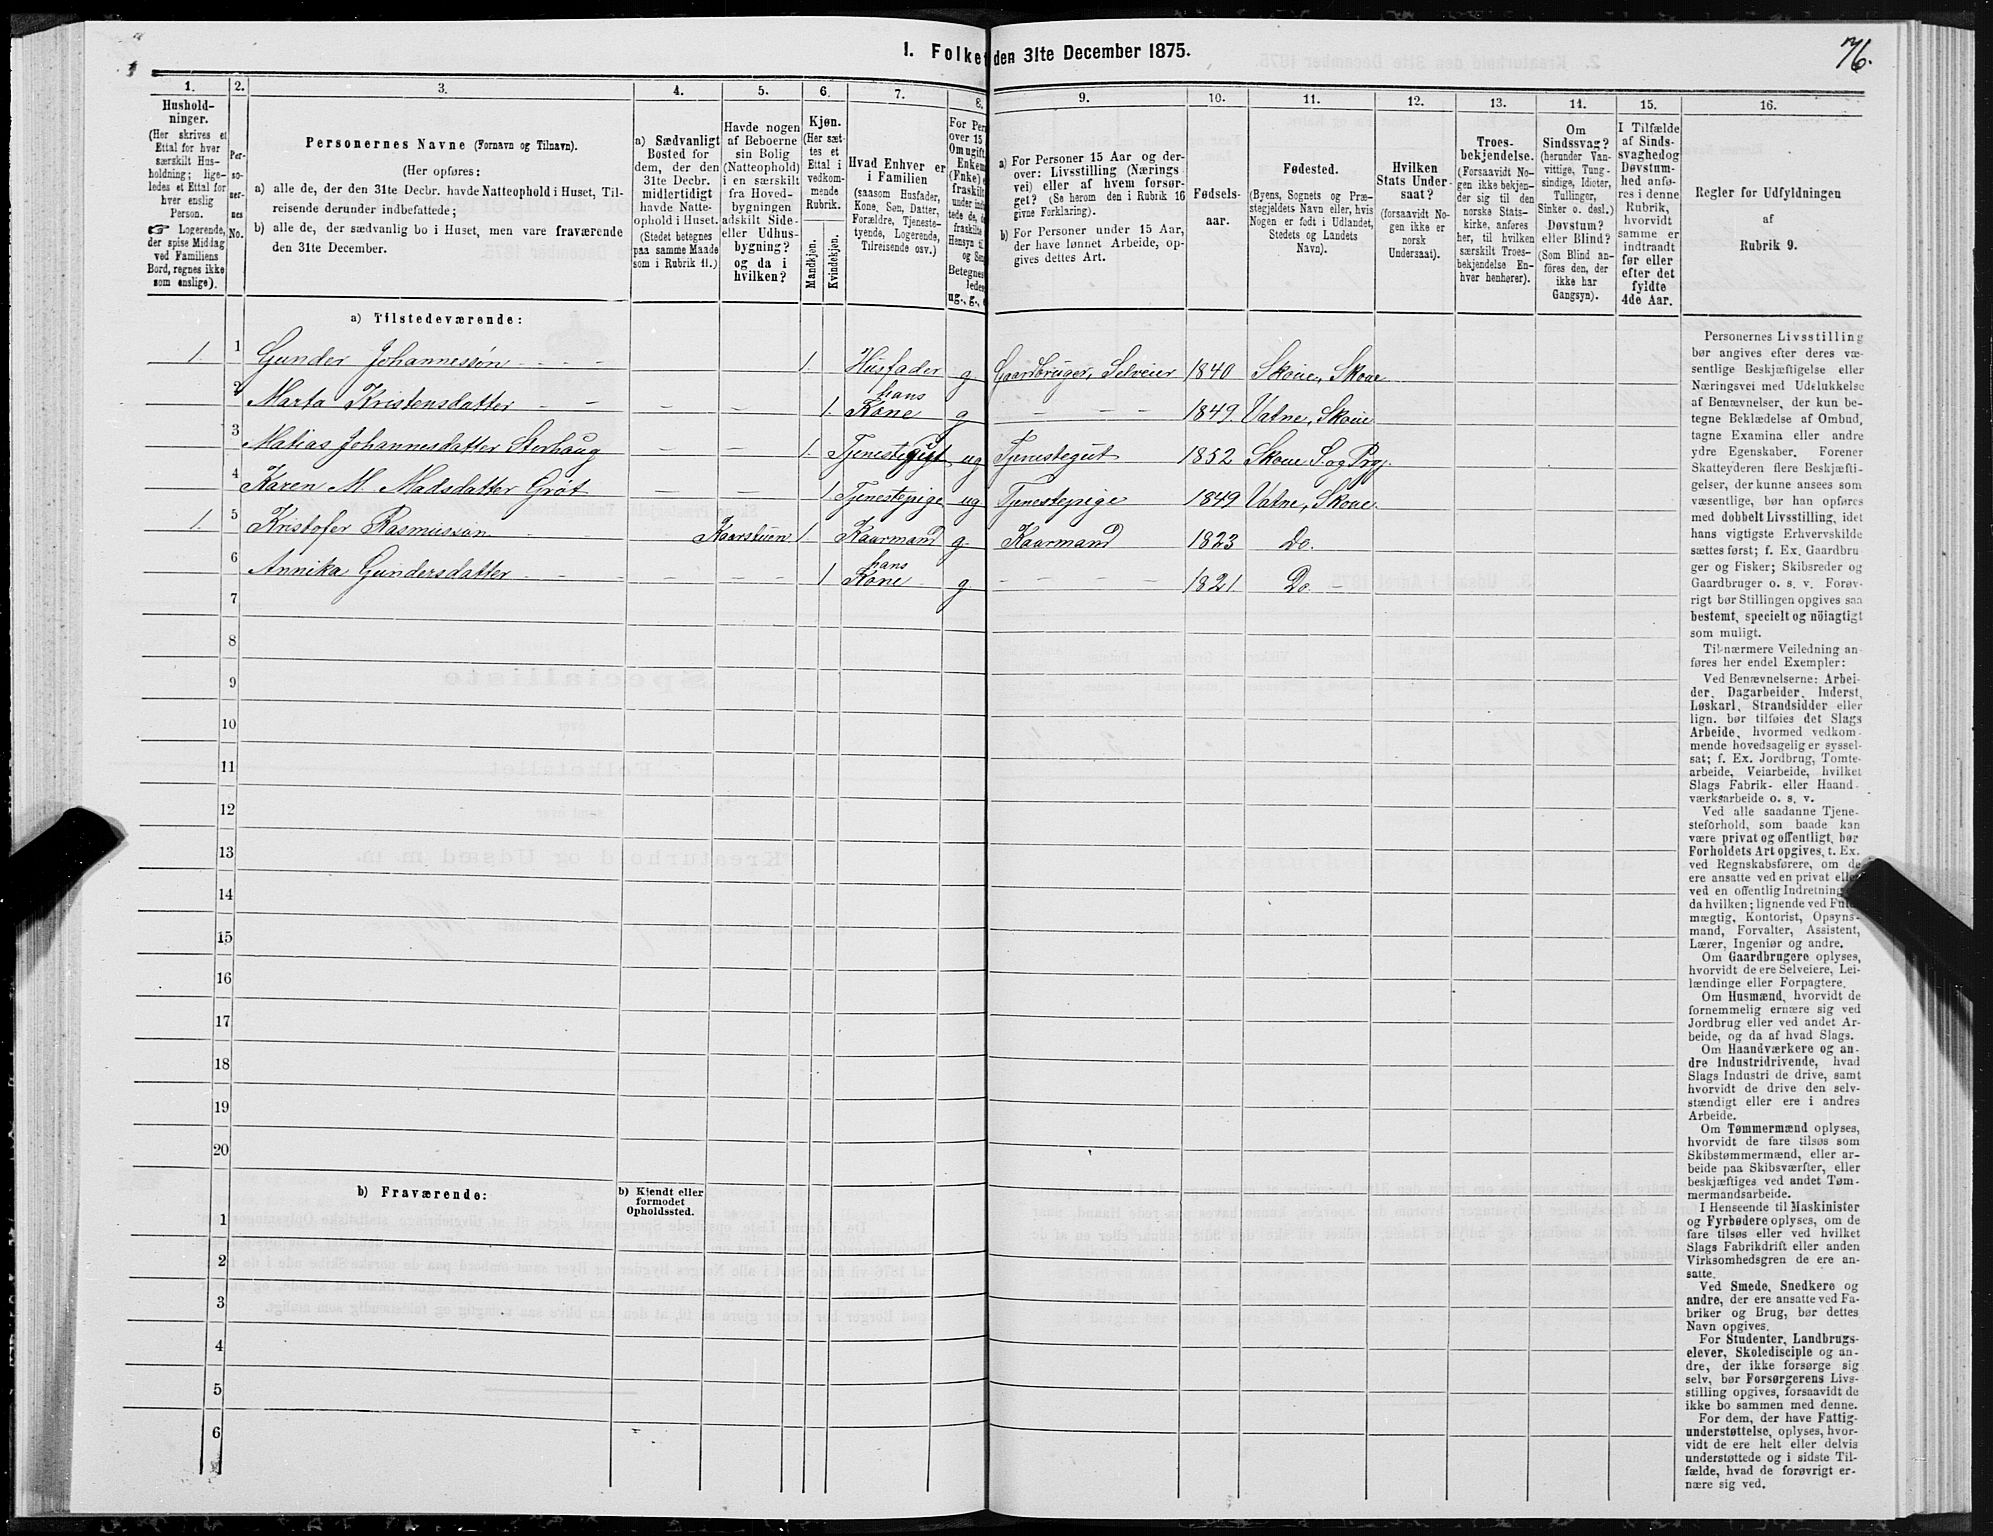 I. Folket den 31te December 1875.
76.
1.
Husholdninger.
(Her skrives et
Ettal for hver
særskilt Husholdning; ligeledes et Ettal for
hver enslig
Person.
☞ Logerende,
der spise Middag
ved Familiens
Bord, regnes ikke
som enslige).
2.
Personernes
No.
3.
Personernes Navne (Fornavn og Tilnavn).
(Her opføres:
a) alle de, der den 31te Decbr. havde Natteophold i Huset, Tilreisende derunder indbefattede;
b) alle de, der sædvanlig bo i Huset, men vare fraværende
den 31te December.
4.
a) Sædvanligt
Bosted for
dem, der den
31te Decbr.
midlertidigt
havde Natteophold i Huset.
(Stedet betegnes
paa samme Maade
som i Rubrik 11.)
5.
Havde nogen
af Beboerne
sin Bolig
(Natteophold)
i en særskilt
fra Hovedbygningen
adskilt Side-
eller Udhusbygning?
og da i
hvilken?
6.
Kjøn.
(Her sættes et
Ettal i
vedkommende
Rubrik.
Mandkjøn.
Kvindekjøn.
7.
Hvad Enhver er
i Familien
(saasom Husfader,
Kone, Søn, Datter,
Forældre, Tjenestetyende, Logerende,
Tilreisende osv.)
8.
For Per
over 15
Om ugift,
Enkem
(Fnke) e
fraskilt
ug., g., e
9.
a) For Personer 15 Aar og derover: Livsstilling (Næringsvei) eller af hvem forsørget? (Se herom den i Rubrik 16
givne Forklaring).
b) For Personer under 15 Aar,
der have lønnet Arbeide, opgives dettes Art.
10.
Fødselsaar.
11.
Fødested.
(Byens, Sognets og Præstegjeldets Navn eller, hvis
Nogen er født i Udlandet,
Stedets og Landets
Navn).
12.
Hvilken
Stats Undersaat?
(forsaavidt Nogen ikke er
norsk
Undersaat).
13.
Troesbekjendelse.
(Forsaavidt Nogen ikke bekjender sig til den
norske Statskirke, anføres
her, til hvilken
særskilt Troesbekjendelse Enhver henhører).
14.
Om
Sindssvag?
(herunder Vanvittige, Tungsindige, Idioter,
Tullinger,
Sinker o. desl.)
Døvstum?
eller Blind?
(Som Blind anføres den, der
ikke har
Gangsyn).
15.
I Tilfælde
af Sindssvaghed og
Døvstumhed anføres i denne
Rubrik,
hvorvidt
samme er
indtraadt
før eller
efter det
fyldte
4de Aar.
16.
Regler for Udfyldningen
af
Rubrik 9.
a) Tilstedeværende:
1. 1 Gunder Johannessøn - - - 1. Husfader g Gaardbruger, Selveier 1840 Skoue, Skoue
2 Marta Kristensdatter - - - - 1. hans Kone g - - - 1849. Vatne, Skoue
3 Matias Johannesdatter Storhaug 1. Tjenestegut ug Tjenestegut 1852 Skoue S. og Prgj.
4 Karen M Madsdatter Grøt - - 1 Tjenestepige ug Tjenestepige 1849 Vatne, Skoue.
1. 5 Kristofer Rasmussøn Kaarstuen 1 Kaarmand g. Kaarmand 1823 Do.
6 Annika Gundersdatter - - - - 1 hans Kone g. - - - 1821. Do. -
7
8
9
10
11
12
13
14
15
16
17
18
19
20
b) Fraværende:
b) Kjendt eller
formodet
Opholdssted.
1
2
3
4
5
6
Personernes Livsstilling
bør angives efter deres væsentlige Beskjæftigelse eller
Næringsvei med Udelukkelse
af Benævnelser, der kun betegne Beklædelse af Ombud,
tagne Examina eller andre
ydre Egenskaber. Forener
Skatteyderen flere Beskjæftigelser, der kunne ansees som
væsentlige, bør han opføres
med dobbelt Livsstilling, idet
hans vigtigste Erhvervskilde
sættes først; f. Ex. Gaardbruger og Fisker; Skibsreder og
Gaardbruger o. s. v. Forøvrigt bør Stillingen opgives saa
bestemt, specielt og nöiagtigt
som muligt.
Til nærmere Veiledning anføres her endel Exempler:
Ved Benævnelserne: Arbeider, Dagarbeider, Inderst,
Løskarl, Strandsidder eller
lign. bør tilføies det Slags
Arbeide, hvormed vedkommende hovedsagelig er sysselsat; f. Ex. Jordbrug, Tomtearbeide, Veiarbeide, hvilket
Slags Fabrik- eller Haandværksarbeide o. s. v.
Ved alle saadanne Tjenesteforhold, som baade kan
være privat og offentligt, bør
Forholdets Art opgives, t. Ex.
ved Regnskabsførere, om de
ere ansatte ved en privat eller
ved en offentlig Indretning
da hvilken; lignende ved Fuldmægtig, Kontorist, Opsynsmand, Forvalter, Assistent,
Lærer, Ingeniør og andre.
Om Gaardbrugere oplyses,
hvorvidt de ere Selveiere, Leilændinge eller Forpagtere.
Om Husmænd, hvorvidt de
fornemmelig ernære sig ved
Jordbrug eller ved andet Arbeide, og da af hvad Slags.
Om Haandværkere og andre Industridrivende, hvad
Slags Industri de drive, samt
hvorvidt de drive den selvstændigt eller ere i andres
Arbeide.
Om Tømmermænd oplyses,
hvorvidt de fare tilsøs som
Skibstømmermænd, eller arbeide paa Skibsværfter, eller
beskjæftiges ved andet Tømmermandsarbeide.
I Henseende til Maskinister
og Fyrbødere oplyses, om de
fare tilsøs eller ved hvilket
Slags Fabrikdrift eller anden
Virksomhedsgren de ere ansatte.
Ved Smede, Snedkere og
andre, der ere ansatte ved Fabriker og Brug, bør dettes
Navn opgives.
For Studenter, Landbrugselever, Skoledisciple og andre, der ikke forsørge sig
selv, bør Forsørgerens Livsstilling opgives, forsaavidt de
ikke bo sammen med denne.
For dem, der have Fattigunderstøttelse, oplyses, hvorvidt de ere helt eller delvis
understøttede og i sidste Tilfælde, hvad de forøvrigt ernære sig ved.